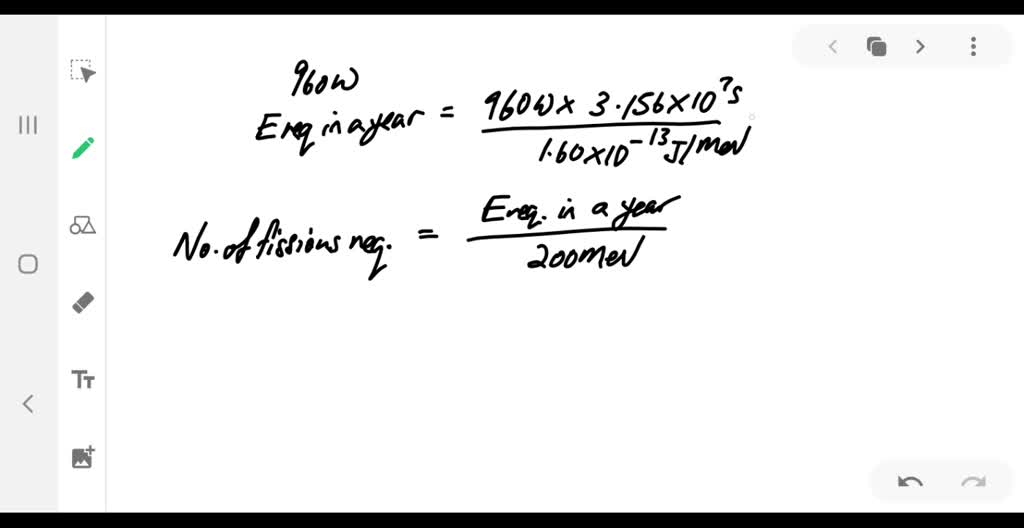 960W
E req in a year = 960W × 3.156×10⁷s / 1.60×10⁻¹³J/MeV
No. of fissions req. = E req. in a year / 200MeV
Tт